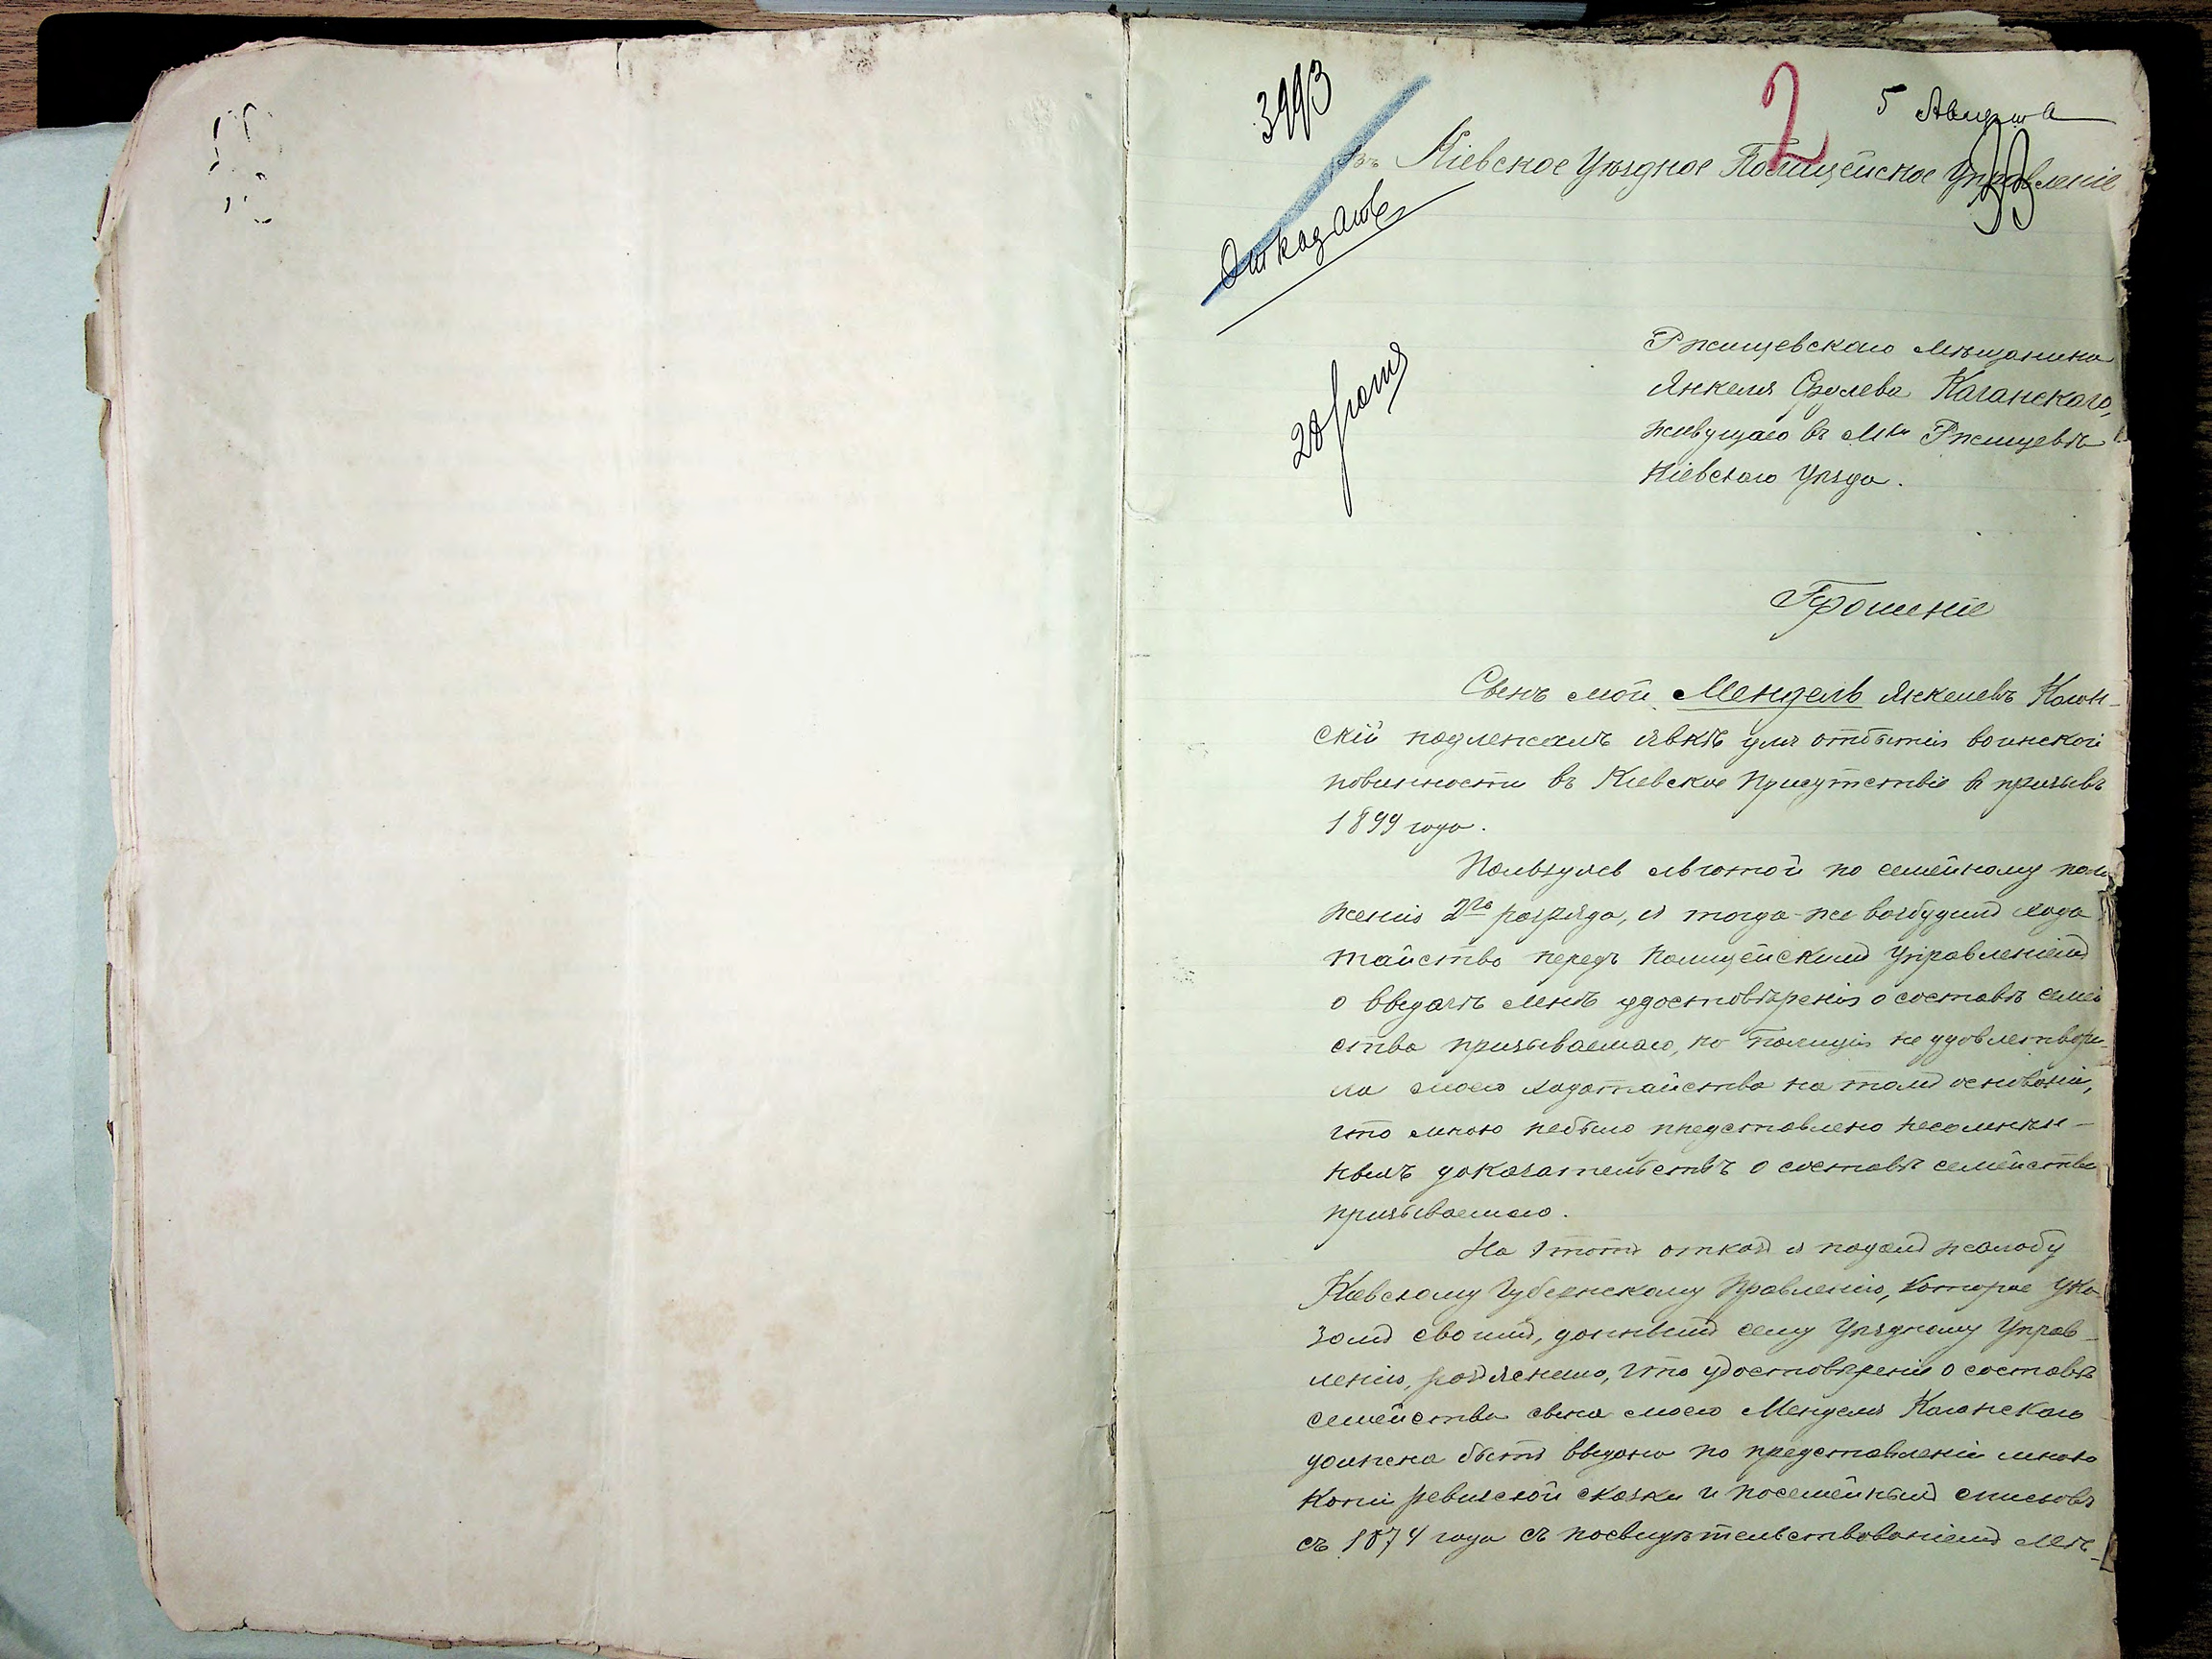 3993
2
5 Августа
99
Въ Кіевское Уѣздное Полицейское Управленіе
Отказать
Ржищевскаго мѣщанина
Янкеля Сролева Каганскаго,
живущаго въ М-кѣ Ржищевѣ
Кіевскаго Уѣзда.
Прошеніе
Сынъ мой Мендель Янкелевъ Каган-
скій подлежалъ явкѣ для отбытія воинской
повинности въ Кіевское Присутствіе въ призывъ
1899 года.
Пользуясь льготой по семейному поло
женію 2го разряда, я тогда-же возбудилъ хода
тайство передъ Полицейскимъ Управленіемъ
о выдачѣ мнѣ удостовѣренія о составѣ семей
ства призываемаго, но Полиція не удовлетвори-
ла моего ходатайства на томъ основаніи,
что мною небыло представлено несомнѣн-
ныхъ доказательствъ о составѣ семейства
призываемаго.
На этотъ отказъ я подалъ жалобу
Кіевскому Губернскому Правленію, которое ука-
зомъ своимъ, даннымъ сему Уѣздному Управ-
ленію, разъяснило, что удостовѣреніе о составѣ
семейства сына моего Менделя Каганскаго
должна быть выдано по представленіи мною
копіи ревизской сказки и посемейный списокъ
съ 1874 года съ посвидѣтельствованіемъ Мѣ-